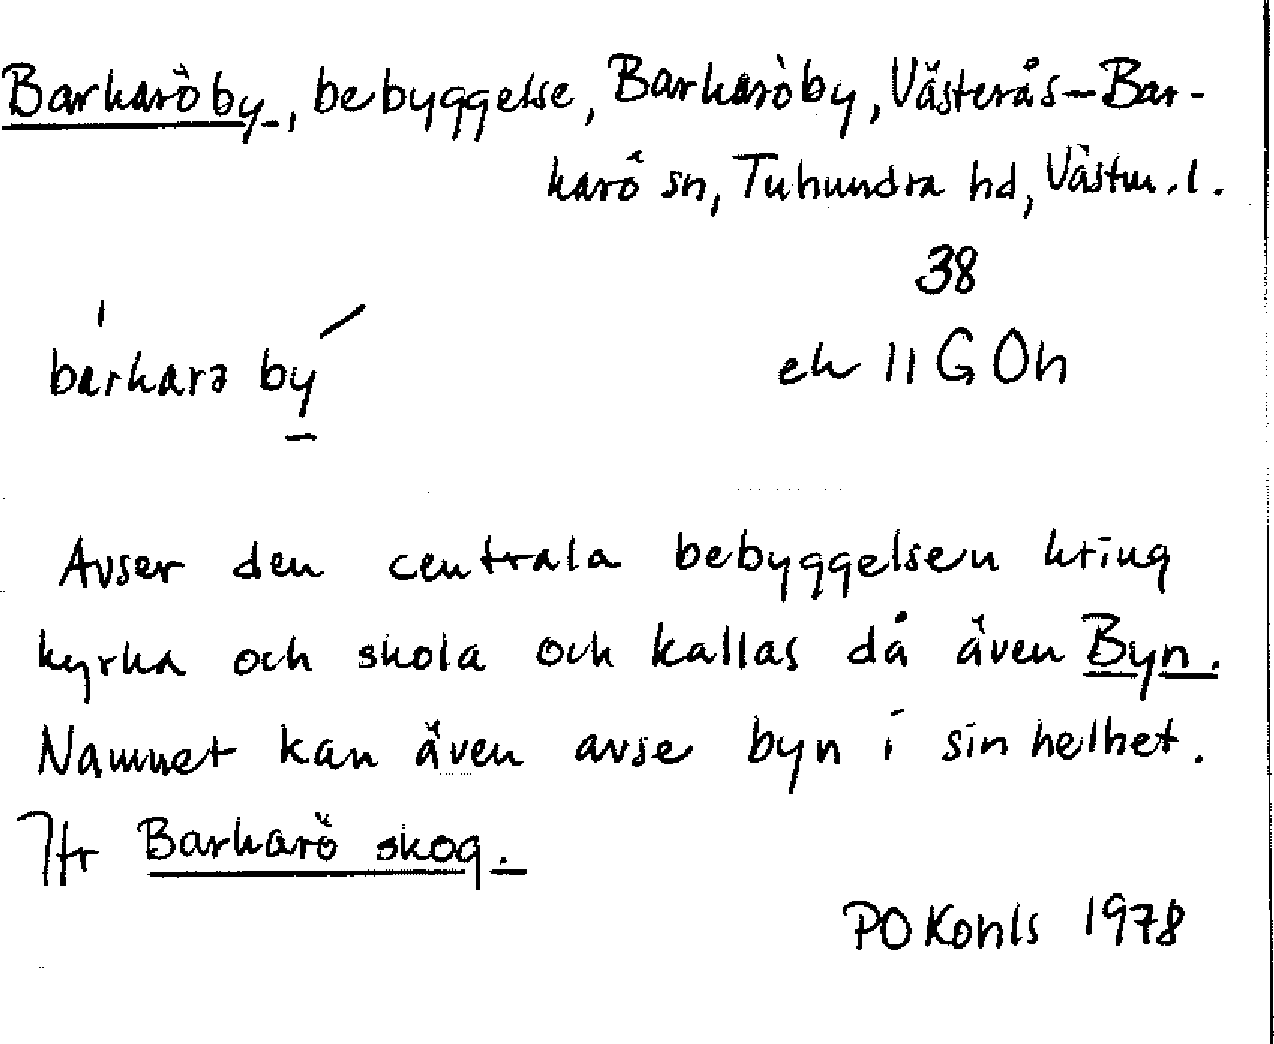 Barkaröby, bebyggelse, Barkaröby, Västerås-Bar-
karö sn, Tuhundra hd, Västm. l.
38
bárkarə by ek 11 G Oh
Avser den centrala bebyggelsen kring
kyrka och skola och kallas då även Byn.
Namnet kan även avse byn i sin helhet.
Jfr Barkarö skog.
PO Kohls 1978